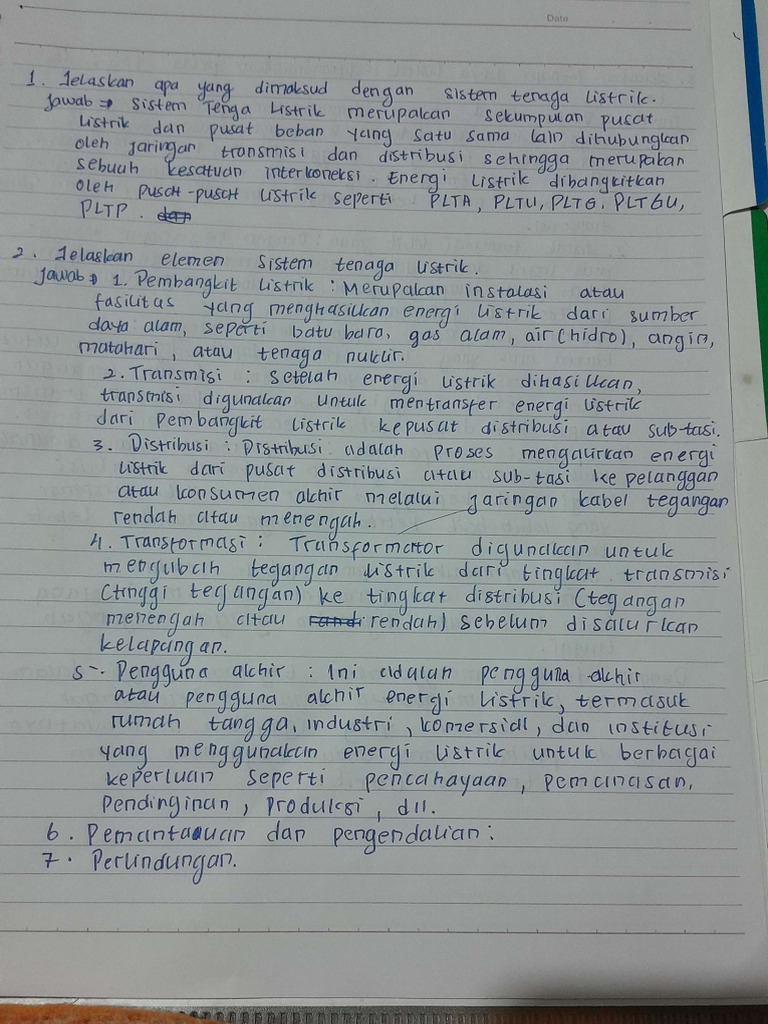 Date
1. Jelaskan apa yang dimaksud dengan sistem tenaga listrik.
Jawab → Sistem Tenga Listrik merupakan sekumpulan pusat
listrik dan pusat beban yang satu sama lain dihubungkan
oleh jaringan transmisi dan distribusi sehingga merupakan
sebuah kesatuan interkoneksi. Energi listrik dibangkitkan
oleh pusat-pusat listrik seperti PLTA, PLTU, PLTG, PLTGU,
PLTP. dan
2. Jelaskan elemen sistem tenaga listrik.
Jawab → 1. Pembangkit listrik : Merupakan instalasi atau
fasilitas yang menghasilkan energi listrik dari sumber
daya alam, seperti batu bara, gas alam, air (hidro), angin,
matahari, atau tenaga nuklir.
2. Transmisi : setelah energi listrik dihasilkan,
transmisi digunakan untuk mentransfer energi listrik
dari pembangkit listrik kepusat distribusi atau sub-tasi.
3. Distribusi : Distribusi adalah proses mengalirkan energi
listrik dari pusat distribusi atau sub-tasi ke pelanggan
atau konsumen akhir melalui jaringan kabel tegangan
rendah atau menengah.
4. Transformasi : Transformator digunakan untuk
mengubah tegangan listrik dari tingkat transmisi
(tinggi tegangan) ke tingkat distribusi (tegangan
menengah atau rendah) sebelum disalurkan
kelapangan.
5. Pengguna akhir : Ini adalah pengguna akhir
atau pengguna akhir energi listrik, termasuk
rumah tangga, industri, komersial, dan institusi
yang menggunakan energi listrik untuk berbagai
keperluan seperti pencahayaan, pemanasan,
pendinginan, produksi, dll.
6. Pemantauan dan pengendalian :
7. Perlindungan.